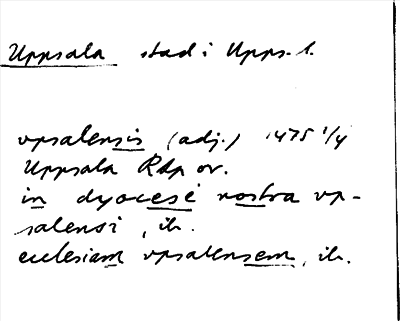 Uppsala stad i Upps. l.
vpsalensis (adj.) 1475 1/4
Uppsala RAp or.
in dyocesi nostra vp-
salensi, ib.
ecclesiam vpsalensem, ib.